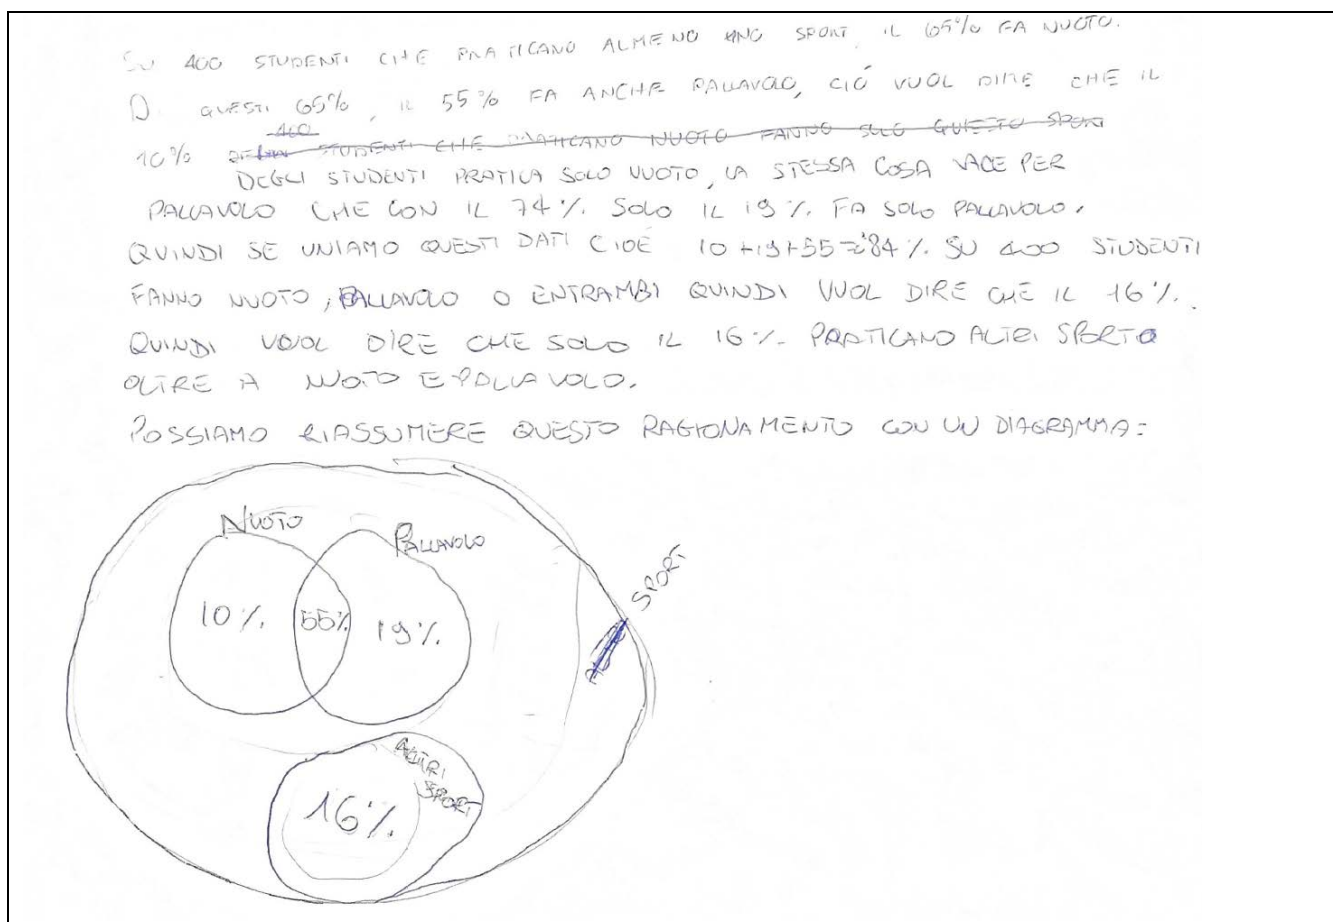 SU 400 STUDENTI CHE PRATICANO ALMENO UNO SPORT, IL 65% FA NUOTO.
DI QUESTI 65%, IL 55% FA ANCHE PALLAVOLO, CIÓ VUOL DIRE CHE IL
400
10% STUDENTI CHE PRATICANO NUOTO FANNO SOLO QUESTO SPORT
DEGLI STUDENTI PRATICA SOLO NUOTO, LA STESSA COSA VALE PER
PALLAVOLO CHE CON IL 74% SOLO IL 19% FA SOLO PALLAVOLO.
QUINDI SE UNIAMO QUESTI DATI CIOÉ 10+19+55=84% SU 400 STUDENTI
FANNO NUOTO, PALLAVOLO O ENTRAMBI QUINDI VUOL DIRE CHE IL 16%.
QUINDI VUOL DIRE CHE SOLO IL 16% PRATICANO ALTRI SPORT
OLTRE A NUOTO E PALLAVOLO.
POSSIAMO RIASSUMERE QUESTO RAGIONAMENTO CON UN DIAGRAMMA:
NUOTO
PALLAVOLO
SPORT
10% 55% 19%
ALTRI
SPORT
16%